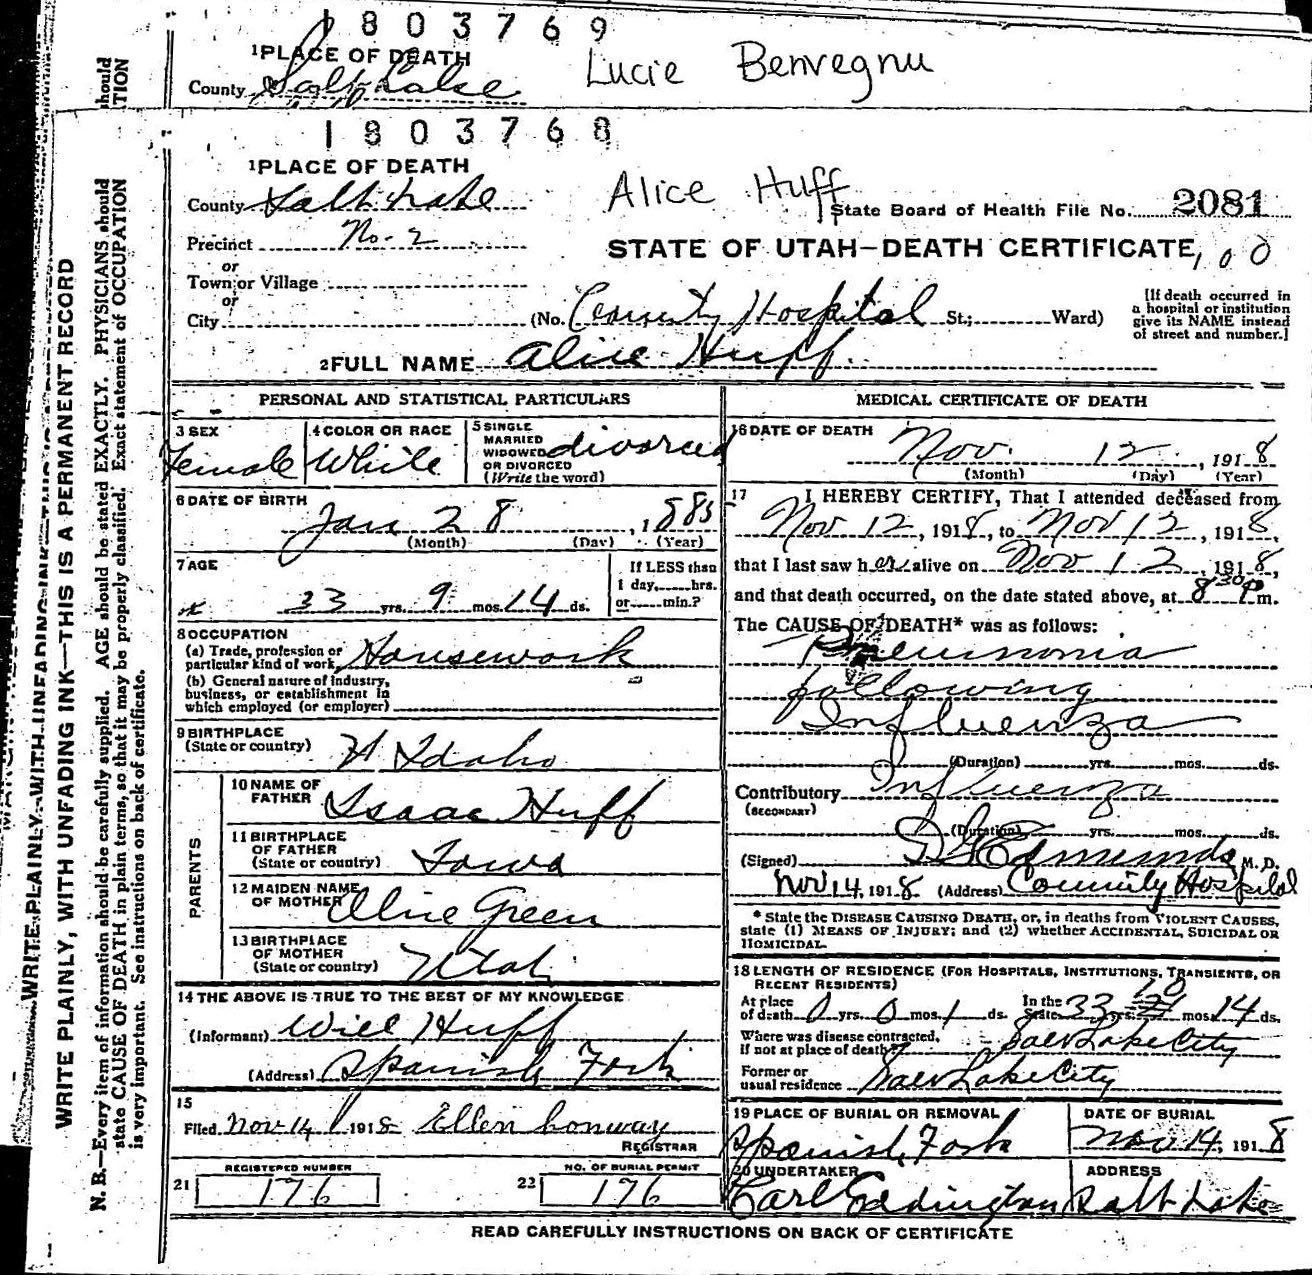 1803769
1PLACE OF DEATH
Lucie Benvegnu
County Salt Lake
should
TION
1803768
1PLACE OF DEATH
Alice Huff
County Salt Lake
State Board of Health File No. 2081
Precinct No-2
STATE OF UTAH—DEATH CERTIFICATE
or
Town or Village
or
City (No. County Hospital St.; Ward)
[If death occurred in
a hospital or institution
give its NAME instead
of street and number.]
2FULL NAME Alice Huff
PERSONAL AND STATISTICAL PARTICULARS
3 SEX
Female
4 COLOR OR RACE
White
5 SINGLE
MARRIED
WIDOWED
OR DIVORCED
(Write the word)
divorced
6 DATE OF BIRTH
Jan 28, 1885
(Month) (Day) (Year)
7 AGE
33 yrs. 9 mos. 14 ds.
If LESS than
1 day, hrs.
or min.?
8 OCCUPATION
(a) Trade, profession or
particular kind of work Housework
(b) General nature of industry,
business, or establishment in
which employed (or employer)
9 BIRTHPLACE
(State or country) Idaho
PARENTS
10 NAME OF
FATHER Isaac Huff
11 BIRTHPLACE
OF FATHER
(State or country) Iowa
12 MAIDEN NAME
OF MOTHER Olive Green
13 BIRTHPLACE
OF MOTHER
(State or country) Utah
14 THE ABOVE IS TRUE TO THE BEST OF MY KNOWLEDGE
(Informant) Will Huff
(Address) Spanish Fork
15
Filed Nov 14 1918 Ellen Conway
REGISTRAR
21 REGISTERED NUMBER
176
22 NO. OF BURIAL PERMIT
176
MEDICAL CERTIFICATE OF DEATH
16 DATE OF DEATH
Nov. 12, 1918
(Month) (Day) (Year)
17 I HEREBY CERTIFY, That I attended deceased from
Nov 12, 1918, to Nov 12, 1918,
that I last saw her alive on Nov 12, 1918,
and that death occurred, on the date stated above, at 8 30 P m.
The CAUSE OF DEATH* was as follows:
Pneumonia
following
Influenza
(Duration) yrs. mos. ds.
Contributory Influenza
(SECONDARY)
(Duration) yrs. mos. ds.
(Signed) Edmunds M. D.
Nov 14, 1918 (Address) County Hospital
* State the DISEASE CAUSING DEATH, or, in deaths from VIOLENT CAUSES,
state (1) MEANS OF INJURY; and (2) whether ACCIDENTAL, SUICIDAL OR
HOMICIDAL.
18 LENGTH OF RESIDENCE (FOR HOSPITALS, INSTITUTIONS, TRANSIENTS, OR
RECENT RESIDENTS)
At place
of death 0 yrs. 0 mos. 1 ds.
In the
State 33 yrs. 10 mos. 14 ds.
Where was disease contracted,
if not at place of death? Salt Lake City
Former or
usual residence Salt Lake City
19 PLACE OF BURIAL OR REMOVAL
Spanish Fork
DATE OF BURIAL
Nov 14, 1918
20 UNDERTAKER
Carl Eddington
ADDRESS
Salt Lake
READ CAREFULLY INSTRUCTIONS ON BACK OF CERTIFICATE
WRITE PLAINLY, WITH UNFADING INK—THIS IS A PERMANENT RECORD
N. B.—Every item of information should be carefully supplied. AGE should be stated EXACTLY. PHYSICIANS should
state CAUSE OF DEATH in plain terms, so that it may be properly classified. Exact statement of OCCUPATION
is very important. See instructions on back of certificate.